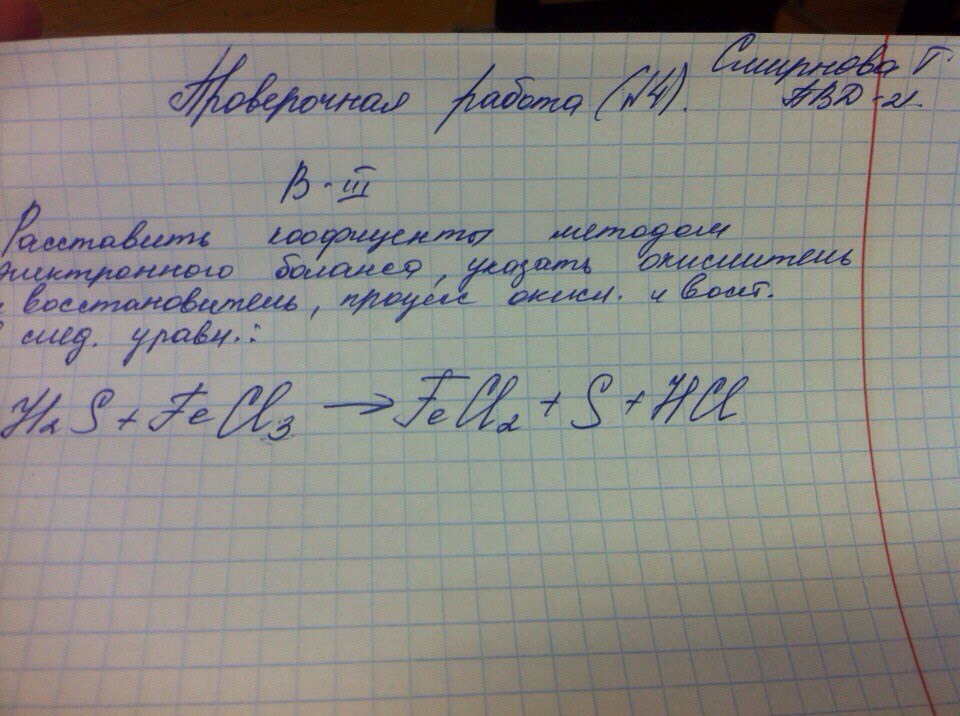 Проверочная работа (№4).
Смирнова Т.
ПВД-21.
В-III
Расставить коофиценты методом
электронного баланса, указать окислитель
и восстановитель, процесс окисл. и восст.
В след. уравн.:
H₂S + FeCl₃ → FeCl₂ + S + HCl